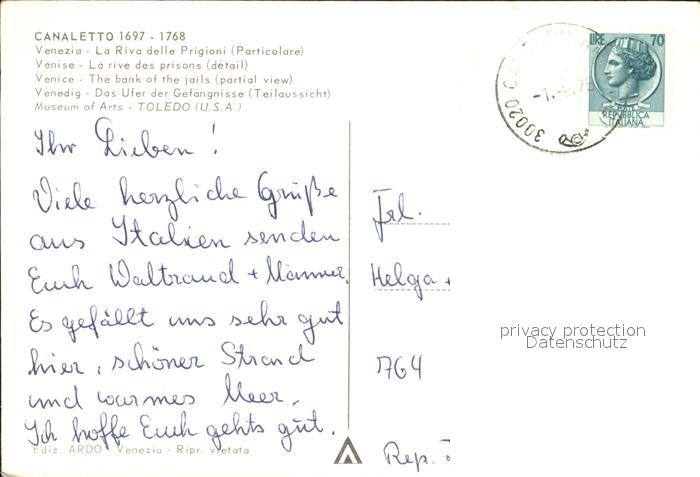 CANALETTO 1697 - 1768
Venezia - La Riva delle Prigioni (Particolare)
Venise - La rive des prisons (détail)
Venice - The bank of the jails (partial view)
Venedig - Das Ufer der Gefängnisse (Teilaussicht)
Museum of Arts - TOLEDO (U.S.A.)
LIRE 70
POSTE
REPVBBLICA
ITALIANA
30020
Ihr Lieben!
Viele herzliche Grüße
aus Italien senden
Euch Waltraud + Männer.
Es gefällt uns sehr gut
hier, schöner Strand
und warmes Meer.
Ich hoffe Euch gehts gut.
Ediz. ARDO - Venezia - Ripr. vietata
Frl.
Helga +
764
Rep.
privacy protection
Datenschutz